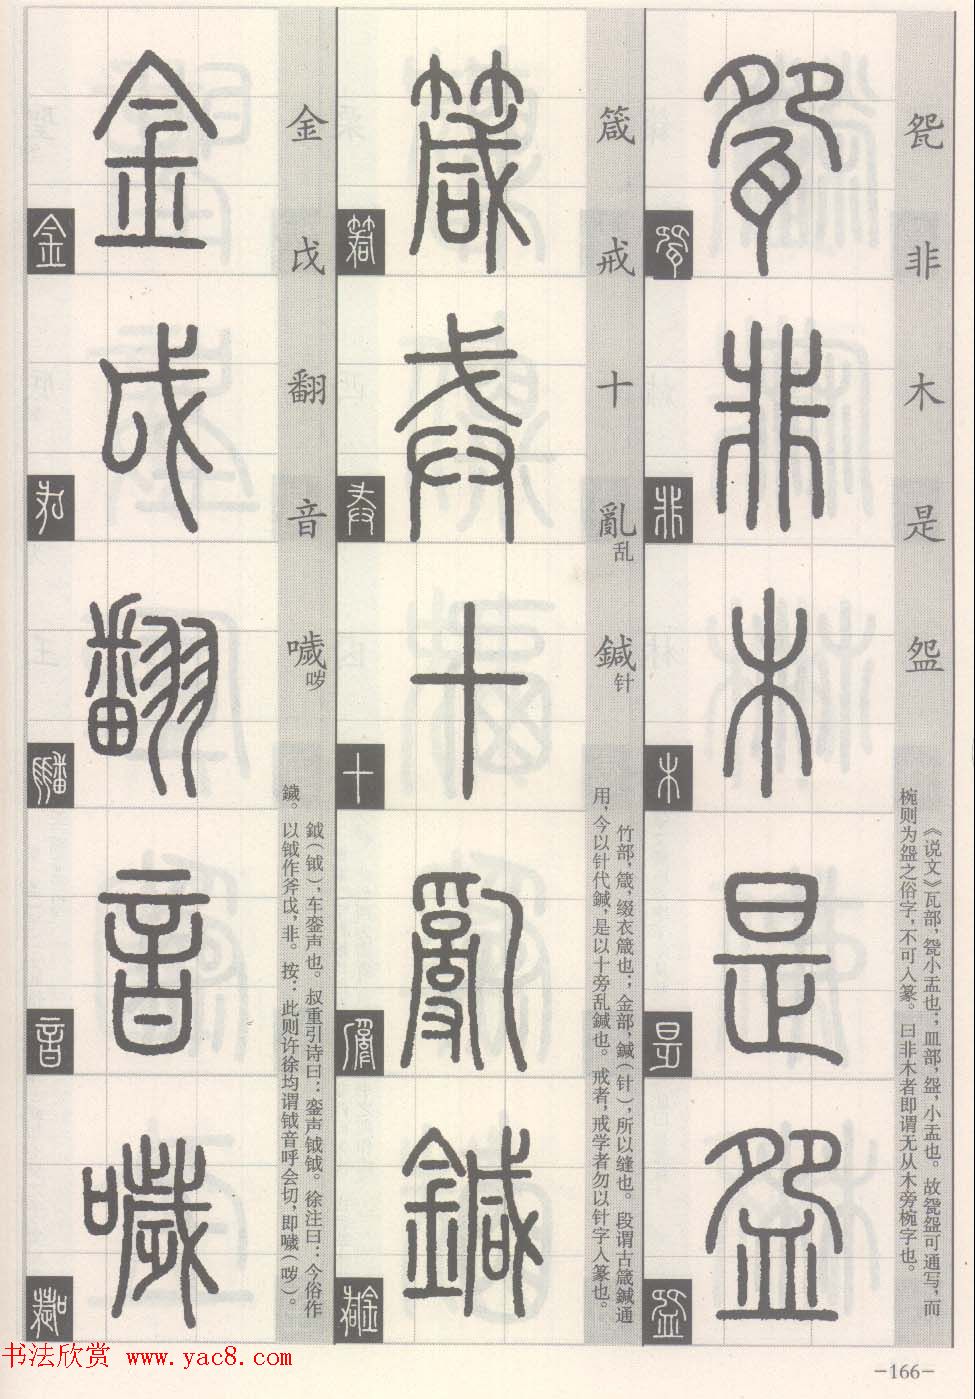 瓫非木是盌
《说文》瓦部，瓫小盂也；皿部，盌，小盂也。故瓫盌可通写，而
椀则为盌之俗字，不可入篆。曰非木者即谓无从木旁椀字也。
箴戒十亂乱鍼针
竹部，箴，缀衣箴也；金部，鍼（针），所以缝也。段谓古箴鍼通
用，今以针代鍼，是以十旁乱鍼也。戒者，戒学者勿以针字入篆也。
金戉翻音噦哕
鉞（钺），车銮声也。叔重引诗曰：銮声钺钺。徐注曰：今俗作
鐬。以钺作斧戉，非。按：此则许徐均谓钺音呼会切，即噦（哕）。
-166-
书法欣赏 www.yac8.com